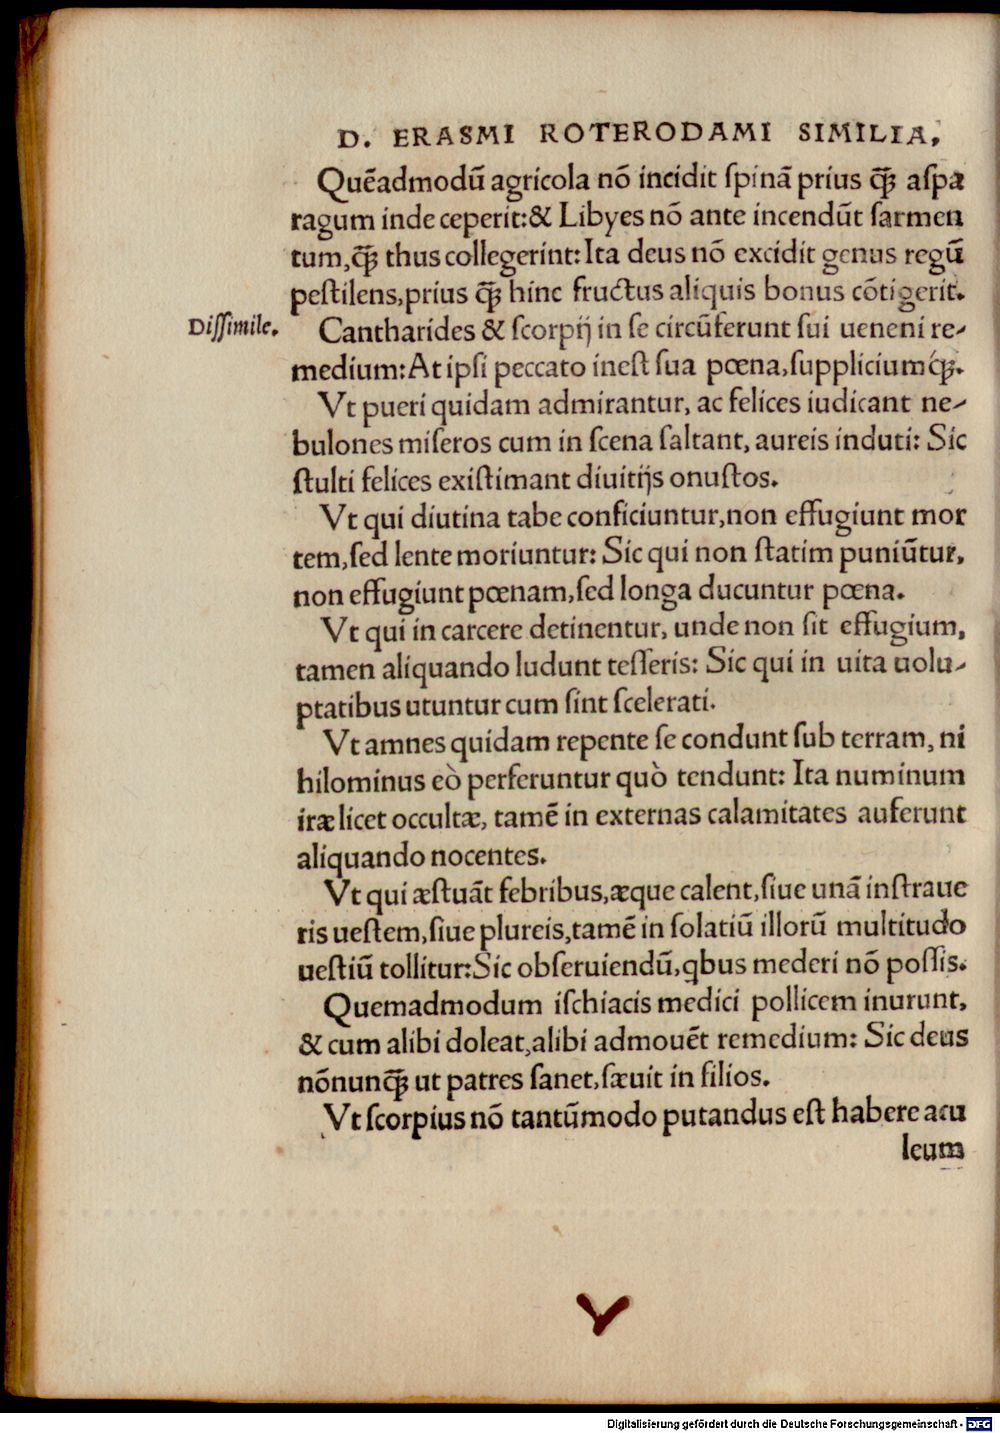 D. ERASMI ROTERODAMI SIMILIA,
Quēadmodū agricola nō incidit ſpinā prius q̄ꝫ aſpa
ragum inde ceperit:& Libyes nō ante incendūt ſarmen
tum,q̄ꝫ thus collegerint:Ita deus nō excidit genus regū
peſtilens,prius q̄ꝫ hinc fructus aliquis bonus cōtigerit.
Diſſimile.
Cantharides & ſcorpij in ſe circūferunt ſui ueneni re-
medium:At ipſi peccato ineſt ſua pœna,ſuppliciumq́ꝫ.
Vt pueri quidam admirantur, ac felices iudicant ne-
bulones miſeros cum in ſcena ſaltant, aureis induti: Sic
ſtulti felices exiſtimant diuitijs onuſtos.
Vt qui diutina tabe conficiuntur,non effugiunt mor
tem,ſed lente moriuntur: Sic qui non ſtatim puniūtur,
non effugiunt pœnam,ſed longa ducuntur pœna.
Vt qui in carcere detinentur, unde non ſit effugium,
tamen aliquando ludunt teſſeris: Sic qui in uita uolu-
ptatibus utuntur cum ſint ſcelerati.
Vt amnes quidam repente ſe condunt ſub terram, ni
hilominus eò perferuntur quò tendunt: Ita numinum
iræ licet occultæ, tamē in externas calamitates auferunt
aliquando nocentes.
Vt qui æſtuāt febribus,æque calent,ſiue unā inſtraue
ris ueſtem,ſiue plureis,tamē in ſolatiū illorū multitudo
ueſtiū tollitur:Sic obſeruiendū,qbus mederi nō poſſis.
Quemadmodum iſchiacis medici pollicem inurunt,
& cum alibi doleat,alibi admouēt remedium: Sic deus
nōnunq̄ꝫ ut patres ſanet,ſæuit in filios.
Vt ſcorpius nō tantūmodo putandus eſt habere acu
leum
Digitalisierung gefördert durch die Deutsche Forschungsgemeinschaft - DFG